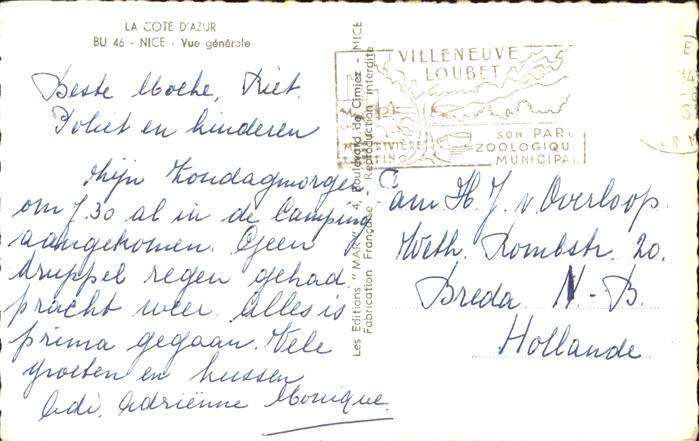 LA COTE D'AZUR
BU 46 - NICE - Vue générale
Beste Moeke, Riet.
Poliet en kinderen
Zijn Zondagmorgen
om 7.30 al in de Camping
aangekomen. Geen
druppel regen gehad
pracht weer. Alles is
prima gegaan. Vele
groeten en kussen
Adi. Adriënne Monique.
Les Editions "MAR" 4, Boulevard de Cimiez - NICE
Fabrication Française - Reproduction interdite
VILLENEUVE
LOUBET
SON PARC
ZOOLOGIQUE
MUNICIPAL
RIVIÈRE
aan H. J. v. Overloop.
Weth. Rombstr. 20.
Breda N-B.
Hollande